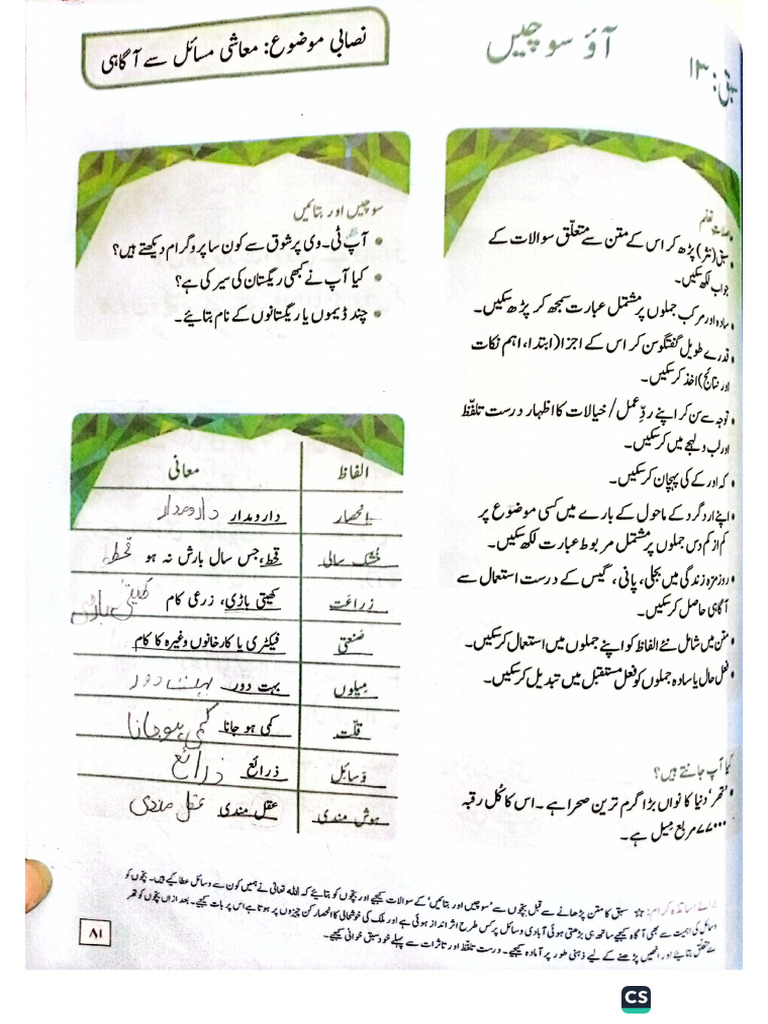 سبق: ۱۳
آؤ سوچیں
نصابی موضوع: معاشی مسائل سے آگاہی
تعلم
سبق (نثر) پڑھ کر اس کے متن سے متعلّق سوالات کے
جواب لکھ سکیں۔
سادہ اور مرکب جملوں پر مشتمل عبارت سمجھ کر پڑھ سکیں۔
قدرے طویل گفتگو سن کر اس کے اجزا (ابتدا، اہم نکات
اور نتائج) اخذ کر سکیں۔
توجہ سے سن کر اپنے ردِّ عمل/ خیالات کا اظہار درست تلفّظ
اور لب و لہجے میں کر سکیں۔
کہ اور کے کی پہچان کر سکیں۔
اپنے ارد گرد کے ماحول کے بارے میں کسی موضوع پر
کم از کم دس جملوں پر مشتمل مربوط عبارت لکھ سکیں۔
روز مرہ زندگی میں بجلی، پانی، گیس کے درست استعمال سے
آگاہی حاصل کر سکیں۔
متن میں شامل نئے الفاظ کو اپنے جملوں میں استعمال کر سکیں۔
فعل حال یا سادہ جملوں کو فعل مستقبل میں تبدیل کر سکیں۔
کیا آپ جانتے ہیں؟
'تھر' دنیا کا نواں بڑا گرم ترین صحرا ہے۔ اس کا کُل رقبہ
۷۷۰۰۰ مربع میل ہے۔
سوچیں اور بتائیں
آپ ٹی۔وی پر شوق سے کون سا پروگرام دیکھتے ہیں؟
کیا آپ نے کبھی ریگستان کی سیر کی ہے؟
چند ڈیموں یا ریگستانوں کے نام بتائیے۔
الفاظ معانی
اِنحصار دارومدار دارومدار
خُشک سالی قحط، جس سال بارش نہ ہو قحط
زراعت کھیتی باڑی، زرعی کام کھیتی باڑی
صَنعتی فیکٹری یا کارخانوں وغیرہ کا کام
مِیلوں بہت دور بہت دور
قلّت کمی ہو جانا کمی ہوجانا
وَسائِل ذرائع ذرائع
ہوش مندی عقل مندی عقل مندی
برائے اساتذہ کرام: ☆ سبق کا متن پڑھانے سے قبل بچّوں سے 'سوچیں اور بتائیں' کے سوالات کیجیے اور بچّوں کو بتائیے کہ اللہ تعالیٰ نے ہمیں کون سے وسائل عطا کیے ہیں۔ بچّوں کو
وسائل کی اہمیت سے بھی آگاہ کیجیے ساتھ ہی بڑھتی ہوئی آبادی وسائل پر کس طرح اثر انداز ہوئی ہے اور ملک کی خوشحالی کا انحصار کن چیزوں پر ہوتا ہے اس پر بات کیجیے۔ بعد ازاں بچّوں کو تھر
سے متعلق بتائیے اور انھیں پڑھنے کے لیے ذہنی طور پر آمادہ کیجیے۔ درست تلفّظ اور تاثرات سے پہلے خود سبق خوانی کیجیے۔
۸۱
CS